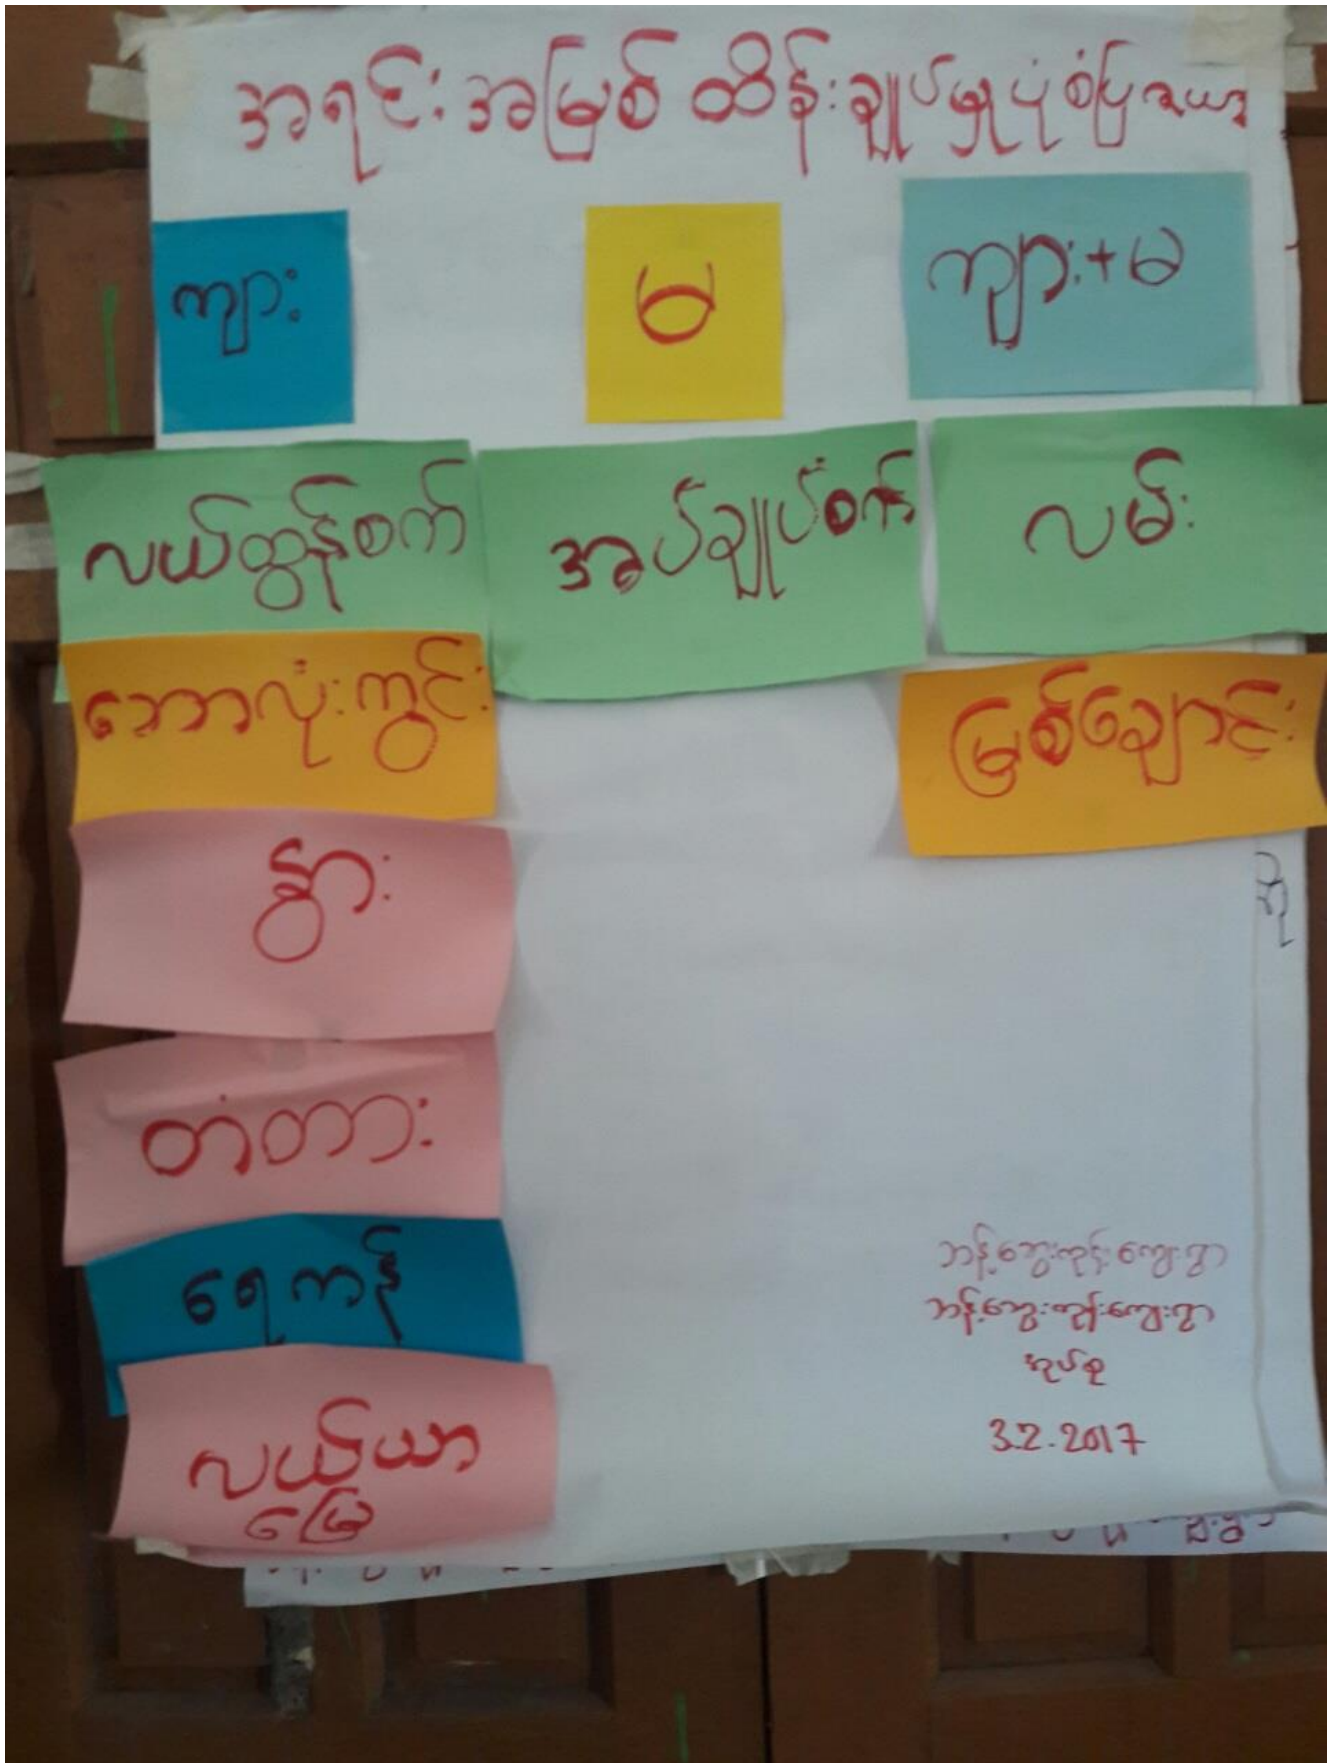 အရင်းအမြစ် ထိန်းချုပ်မှုပုံစံပြဇယား
ကျား မ ကျား+မ
လယ်ထွန်စက် အပ်ချုပ်စက် လမ်း
ဘောလုံးကွင်း မြစ်ချောင်း
နွား
တံတား
ရေကန်
လယ်ယာ
မြေ
အုပ်စု
3.2.2017